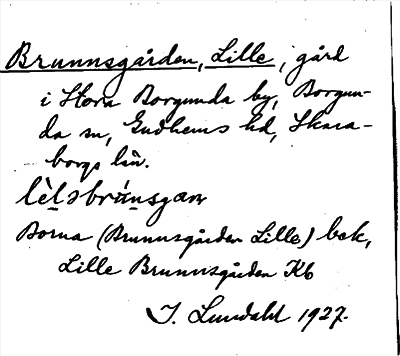 Brunnsgården, Lille, gård
i Stora Borgunda by, Borgun-
da sn, Gudhems hd, Skara-
borgs län.
lèḷəbrúnsgaɳ
Borna (Brunnsgården Lille) bek,
Lille Brunnsgården Kb
I. Lundahl 1927.